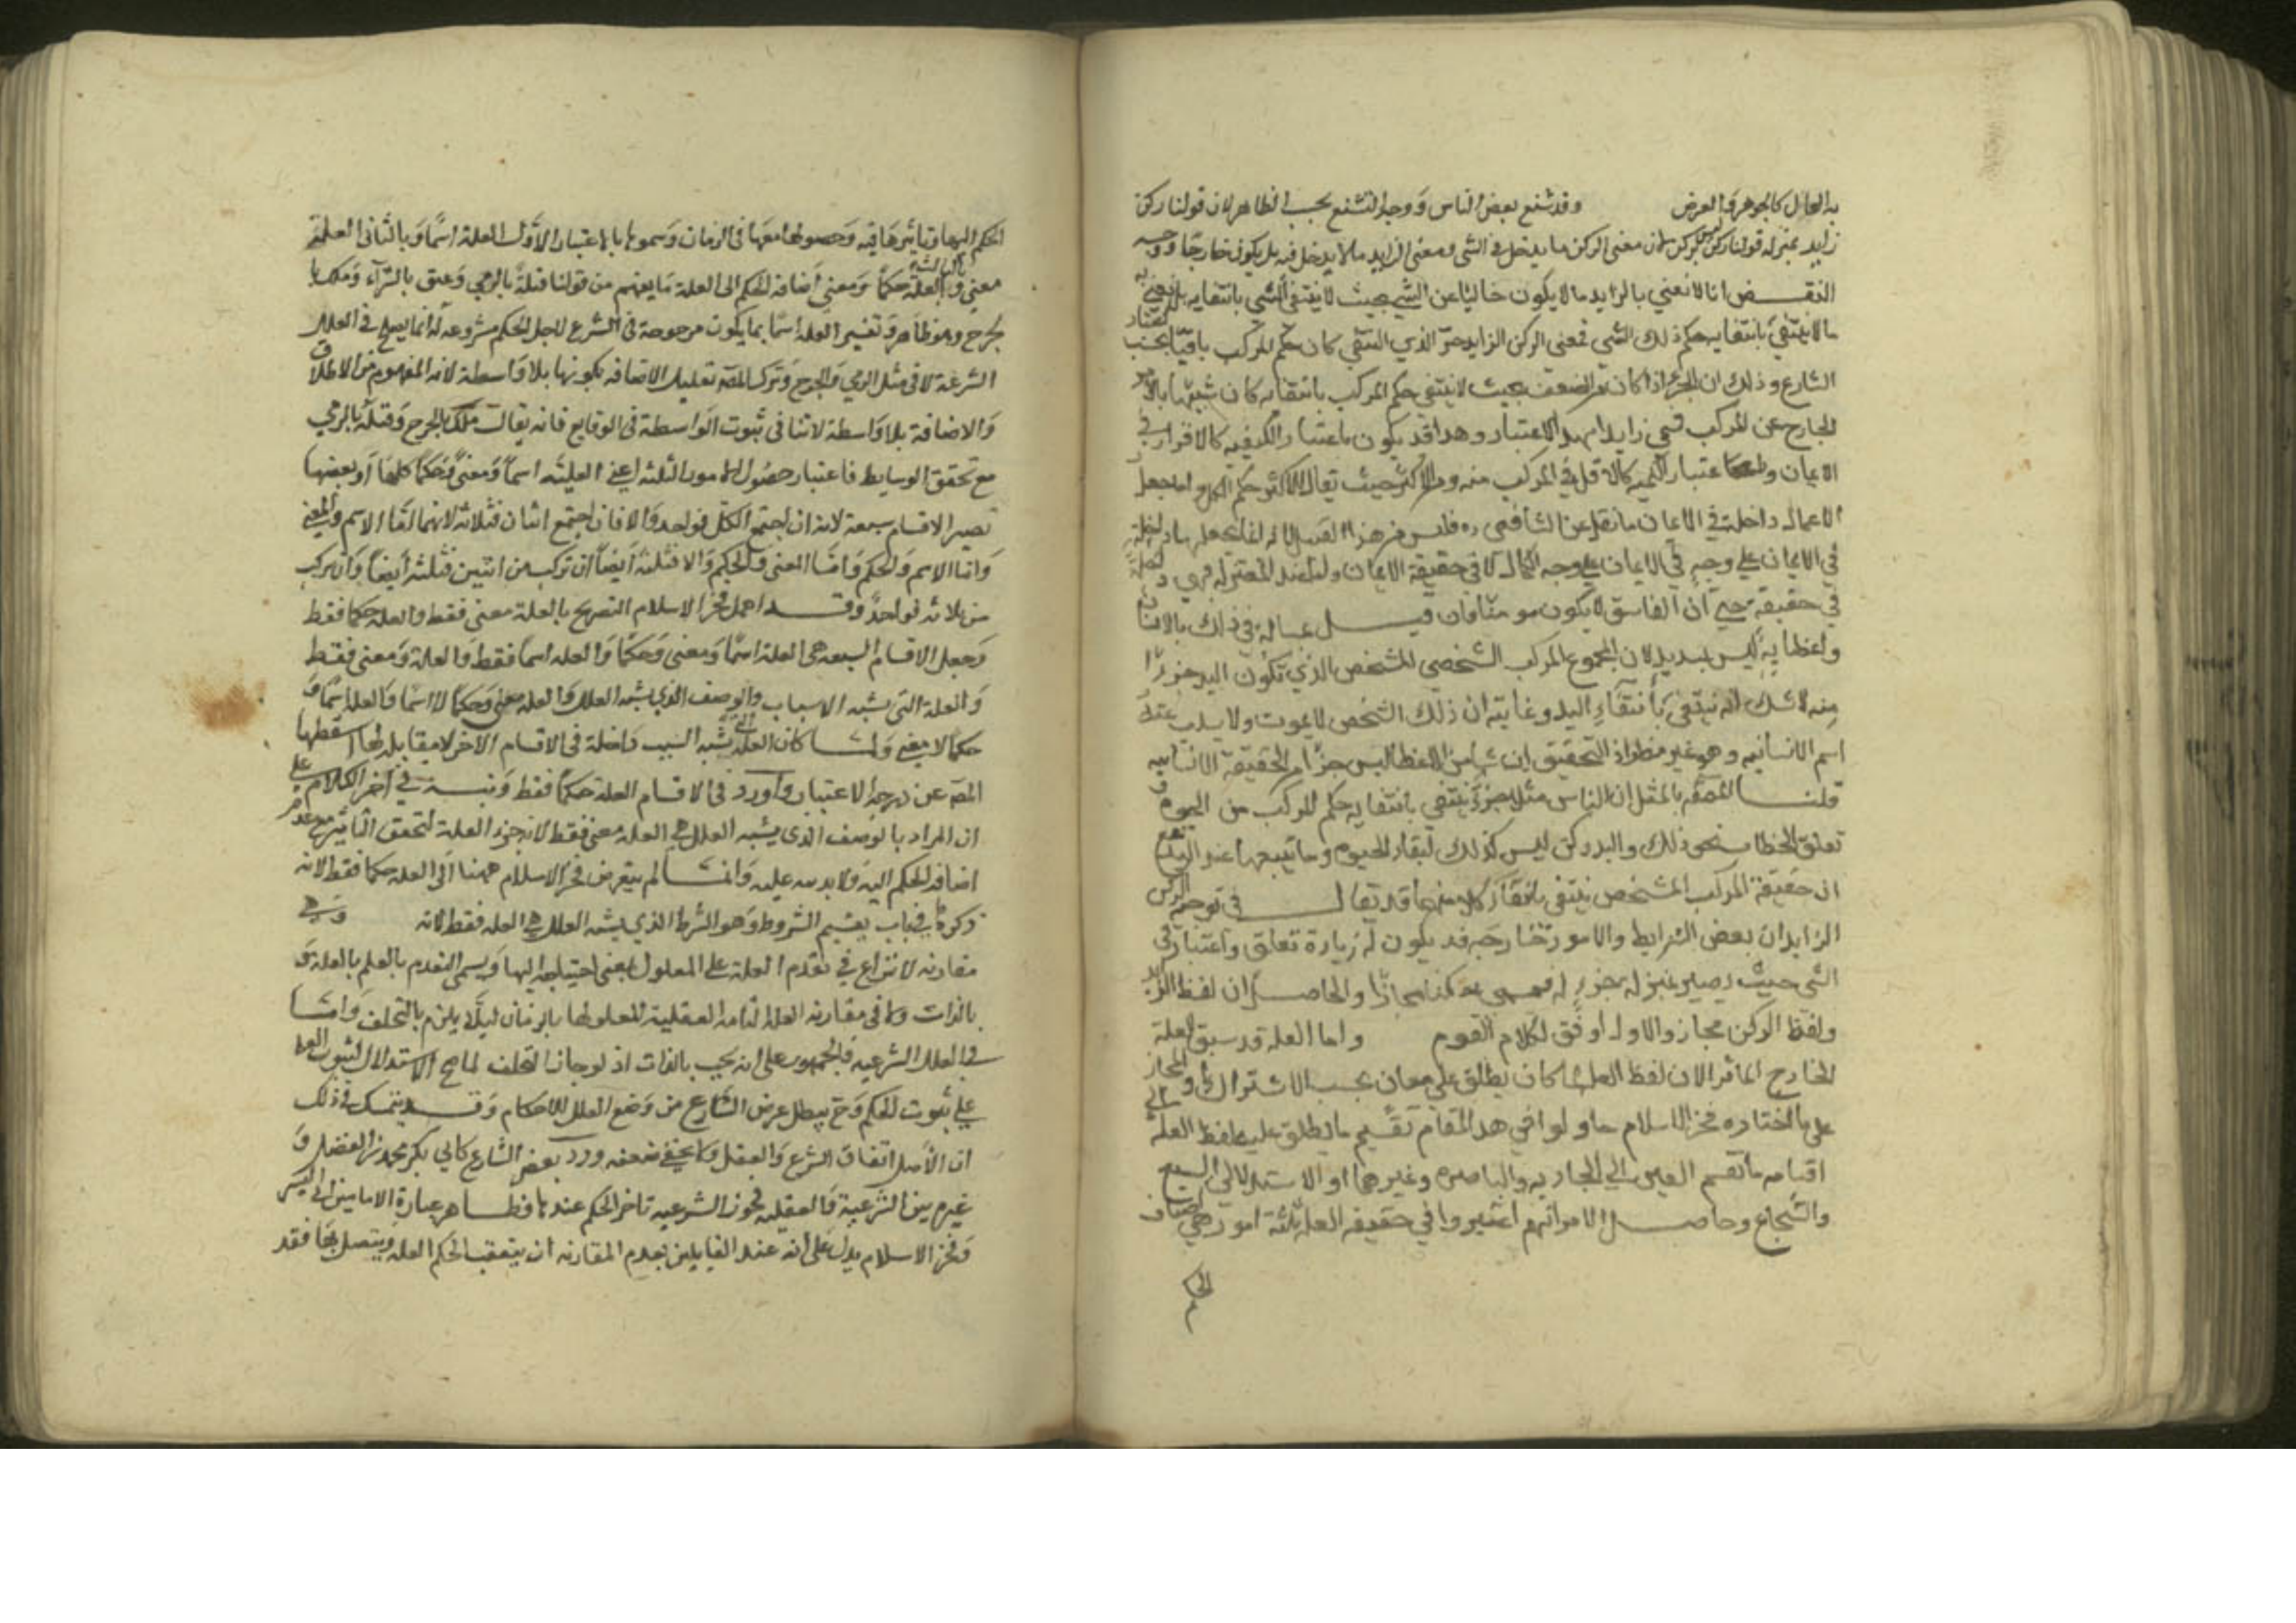 به الحال كالجوهر والعرض وقد شنع بعض الناس ووجه التشنع بحسب الظاهر لان قولنا ركن
زايد بمنزله قولنا ركن ليس بركن لان معنى الركن ما يدخل في الشي ومعنى الزايد ما لا يدخل فيه بل يكون خارجا ووجه
النقض انا لا نعني بالزايد ما لا يكون خاليا عن الشي بحيث لا ينتفي الشي بانتفايه بل نعني به
ما لا ينتفي بانتفايه حكم ذلك الشي فمعنى الركن الزايد الجزء الذي انتفى كان حكم المركب باقيا بحسب اعتبار
الشارع وذلك ان الجزء اذا كان من الضعف بحيث لا ينتفي حكم المركب بانتفايه كان شبيها بالامر
الخارج عن المركب فسمي زايدا بهذا الاعتبار وهذا قد يكون باعتبار الكيفيه كالاقرار في
الايمان واما باعتبار الكميه كالاقل في المركب منه ومن الاكثر حيث يقال للاكثر حكم الكل واما جعل
الاعمال داخلة في الايمان ما نقل عن الشافعي ره فليس من هذا القبيل لانه انما يجعلها داخلة
في الايمان على وجه الكمال لا في حقيقة الايمان واما عند المعتزله فهي داخلة
في حقيقته حتى ان الفاسق لا يكون مومنا فان قيل في ذلك بالانسان
واعضايه ليس بسديد لان المجموع المركب الشخصي المشخص الذي تكون اليد جزءا
منه لا شك انه ينتفي بانتفاء اليد وغايته ان ذلك الشخص لا يموت ولا يسلب عنه
اسم الانسانيه وهو غير مضر اذ التحقيق ان شيا من الاعضا ليس جزءا من الحقيقة الانسانيه
قلنا المقصود بالمثل ان الراس مثلا جزء ينتفي بانتفايه حكم المركب من الحيوه و
تعلق الخطاب ونحو ذلك واليد ركن ليس كذلك لبقاء الحيوه وما يتبعها عند القطع
ان حقيقة المركب المشخص ينتفي بانتفاء كل منهما وقد يقال في توجيه الركن
الزايد ان بعض الشرايط والامور الخارجه قد يكون له زيادة تعلق واعتبار في
الشي حيث يصير بمنزله جزء له فسمي ركنا مجازا والحاصل ان لفظ الزايد
ولفظ الركن مجاز والاول اوفق لكلام القوم واما العلة قد سبق العلة
الخارج المؤثر الا ان لفظ العله لما كان يطلق على معان بحسب الاشتراك او المجاز
على ما اختاره فخر الاسلام حاولوا في هذا المقام تقسيم ما يطلق عليه لفظ العلة الى
اقسامه كما تقسم العين الى الجاريه والباصره وغيرهما او الاسد الى السبع
والشجاع وحاصل الامر انهم اعتبروا في حقيقه العله ثلثة امور هي اضافة
الحكم
الحكم اليها وتاثيرها فيه وحصولها معها في الزمان وسموها باعتبار الاول العلة اسما وبالثاني العلة
معنى وبالثالث العلة حكما ومعنى اضافة الحكم الى العلة ما يفهم من قولنا قتله بالرمي وعتق بالشراء وهلك با
لجرح وهو ظاهر وتفسير العله اسما بما يكون موضوعة في الشرع لاجل الحكم مشروعه له انما يصح في العلل
الشرعية لا في مثل الرمي والجرح وترك المص تقييد الاضافه بكونها بلا واسطة لانه المفهوم من الاطلاق
والاضافة بلا واسطة لا تنافي ثبوت الواسطة في الواقع فانه يقال هلك بالجرح وقتله بالرمي
مع تحقق الوسايط فاعتبار حصول الامور الثلثة اعني العليه اسما ومعنى وحكما كلها او بعضها
تصير الاقسام سبعة لانه ان اجتمع الكل فواحد والا فان اجتمع اثنان فثلاثة لانهما اما الاسم والمعنى
واما الاسم والحكم واما المعنى والحكم والا فثلثة ايضا ان تركب من اثنين فثلثة ايضا وان تركب
من ثلاثه فواحد وقد اهمل فخر الاسلام التصريح بالعلة معنى فقط والعله حكما فقط
وجعل الاقسام السبعه هي العلة اسما ومعنى وحكما والعله اسما فقط والعلة ومعنى فقط
والعلة التي يشبه الاسباب والوصف الذي يشبه العلل والعله معنى وحكما لا اسما والعله اسما و
حكما لا معنى ولما كان العلة التي يشبه السبب داخلة في الاقسام الاخر لا مقابلة لها اسقطها
المص عن درجة الاعتبار واورد في الاقسام العلة حكما فقط ونبه في آخر الكلام على
ان المراد بالوصف الذي يشبه العلل هي العله معنى فقط لانه جزء العلة لتحقق التاثير مع عدم
اضافة الحكم اليه ولا بد منه عليه وانما لم يتعرض فخر الاسلام ههنا الى العله حكما فقط لانه
ذكره في باب تقسيم الشروط وهو الشرط الذي يشبه العلل هي العله فقط لانه وهي
مقارنه لا نزاع في تقدم العلة على المعلول بمعنى احتياجه اليها ويسمى التقدم بالعلم بالعلة و
بالذات ولا في مقارنه العله التامه العقلية لمعلولها بالزمان ليلا يلزم بالتخلف واما
في العلل الشرعيه فالجمهور على انه يجب بالذات اذ لو جاز التخلف لما صح الاستدلال بثبوت العله
على ثبوت الحكم وح يبطل غرض الشارع من وضع العلل للاحكام وقد يتمسك في ذلك
ان الاصل اتفاق الشرع والعقل ولا يخفى ضعفه ورد بعض الشارع كابي بكر محمد بن الفضل و
غيره بين الشرعية والعقليه فجوز الشرعيه تاخر الحكم عندها فظاهر عبارة الامامين ابي اليسر
وفخر الاسلام يدل على انه عند القايلين بعدم المقارنه ان يتعقب الحكم العله ويتصل بها فقد